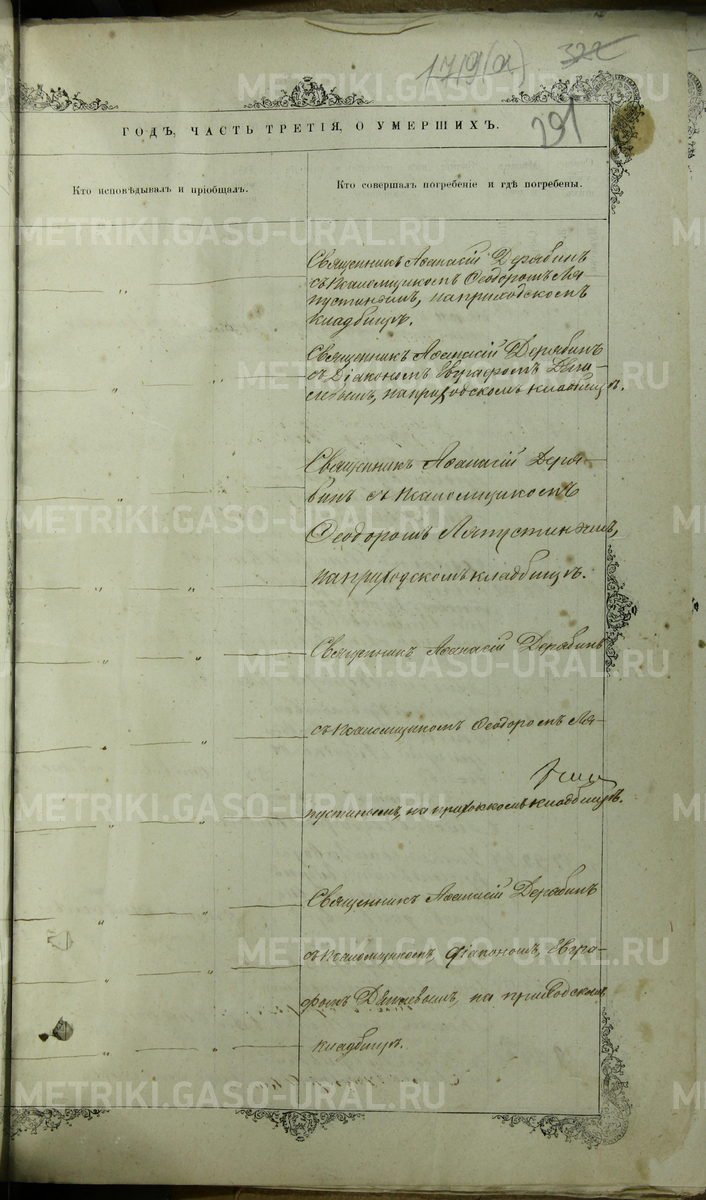 179(а)
322
291
ГОДЪ, ЧАСТЬ ТРЕТІЯ, О УМЕРШИХЪ.
Кто исповѣдывалъ и пріобщалъ.
Кто совершалъ погребеніе и гдѣ погребены.
Священникъ Аѳанасій Дерябинъ
съ Псаломщикомъ Ѳеодоромъ Ля-
пустинымъ, на приходскомъ
кладбищѣ.
Священникъ Аѳанасій Дерябинъ
съ Діакономъ Евграфомъ
на приходскомъ кладбищѣ.
Священникъ Аѳанасій Деря-
бинъ съ Псаломщикомъ
Ѳеодоромъ Ляпустинымъ,
на приходскомъ кладбищѣ.
Священникъ Аѳанасій Дерябинъ
съ Псаломщикомъ Ѳеодоромъ Ля-
пустинымъ, на приходскомъ кладбищѣ.
Священникъ Аѳанасій Дерябинъ
съ Псаломщикомъ, Діакономъ, Евгра-
фомъ на приходскомъ
кладбищѣ.
METRIKI.GASO-URAL.RU